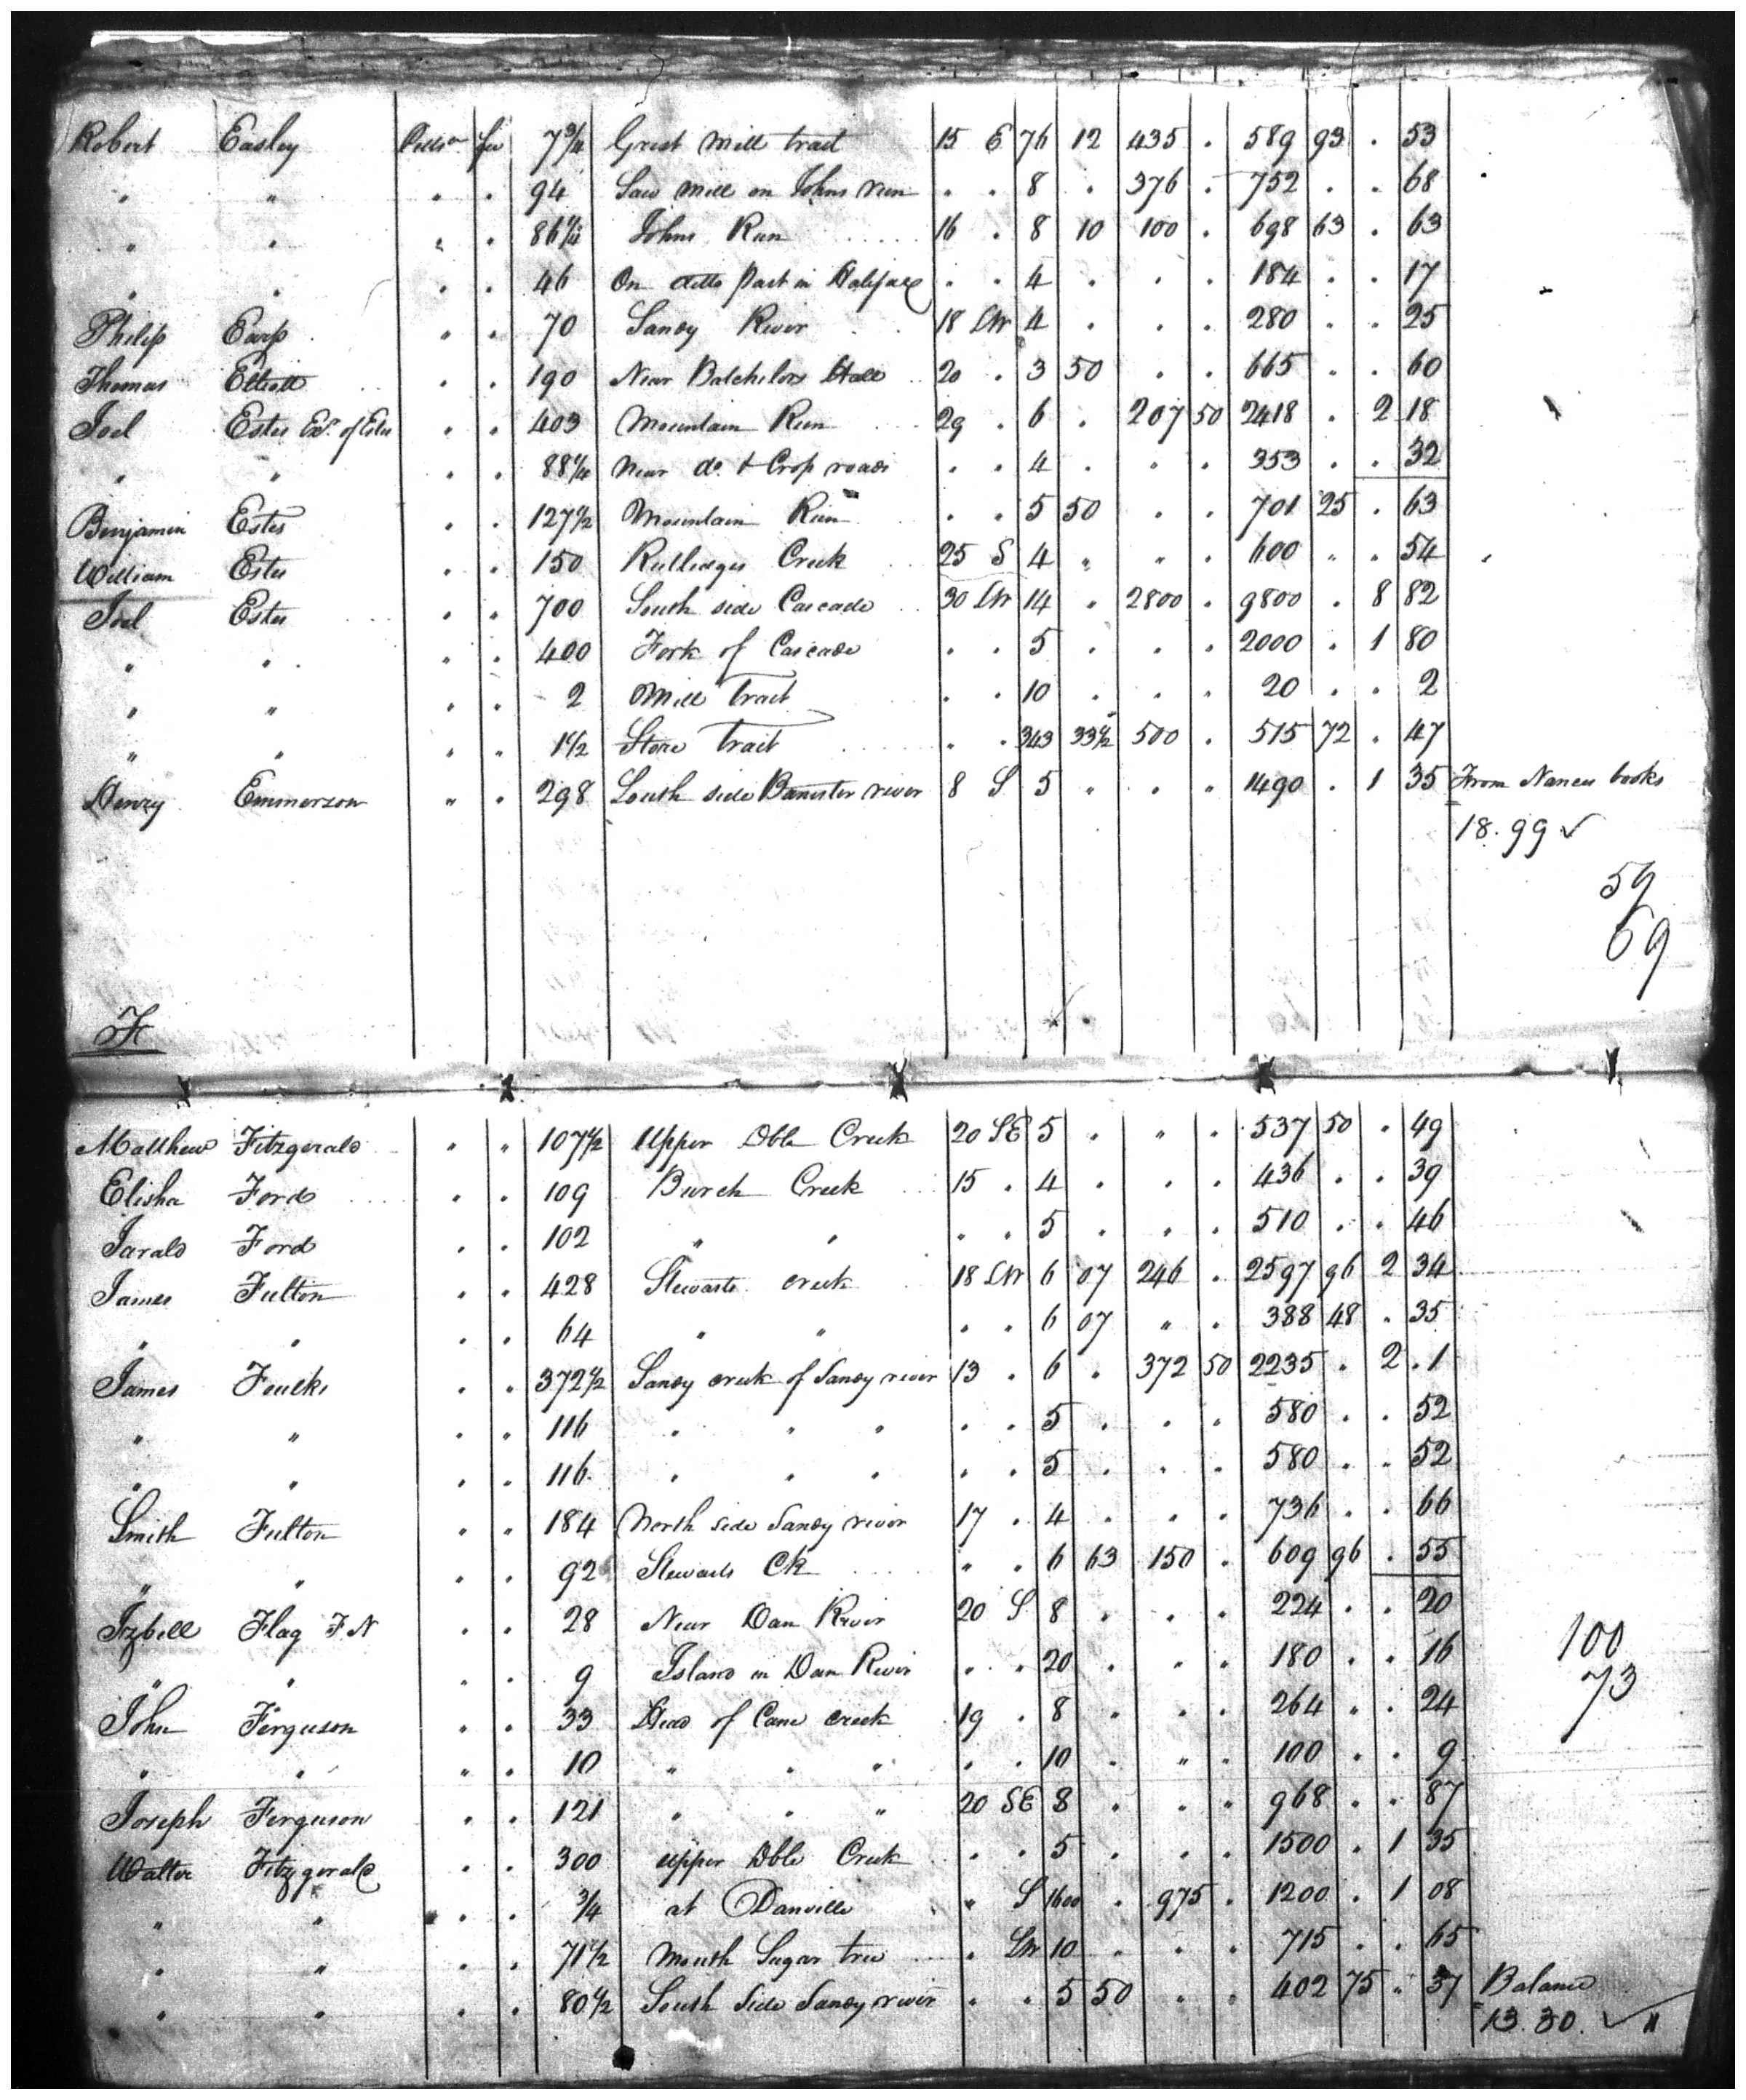 Robert Easley Pittsa fee 7¾ Grist Mill tract 15 E 76 12 435 . 589 93 . 53
" " " . 94 Saw Mill on Johns run . . 8 . 376 . 752 . . 68
" " " . 86¼ Johns Run 16 . 8 10 100 . 698 63 . 63
" " . . 46 On ditto Part in Halifax . . 4 . . . 184 . . 17
Philip Earp " . 70 Sandy River 18 SW 4 . . . 280 . . 25
Thomas Elliott . . 190 Near Batchelors Hall 20 . 3 50 . . 665 . . 60
Joel Estes Exr. of Estes . . 403 Mountain Run 29 . 6 . 207 50 2418 . 2 18
" " . . 88¼ Near do. & Crop roads . . 4 . " . 353 . . 32
Benjamin Estes . . 127½ Mountain Run . . 5 50 . . 701 25 . 63
William Estes . . 150 Rutledges Creek 25 S 4 " " . 600 " . 54
Joel Estes . . 700 South side Cascade 30 SW 14 . 2800 . 9800 . 8 82
" " . . 400 Fork of Cascade . . 5 . . . 2000 . 1 80
" " . . 2 Mill tract . . 10 . . . 20 . . 2
" " . . 1½ Store tract . . 343 33½ 500 . 515 72 . 47
Henry Emmerson " . 298 South side Banister river 8 S 5 " . " 1490 . 1 35 From Nances books
18.99 ✓
59
69
F
Matthew Fitzgerald " " 107½ Upper Dble Creek 20 SE 5 . " . 537 50 . 49
Elisha Ford . . 109 Burch Creek 15 . 4 . . . 436 . . 39
Jarald Ford . . 102 " " . . 5 . . . 510 . . 46
James Fulton . . 428 Stewarts creek 18 SW 6 07 246 . 2597 96 2 34
" " . . 64 " " . . 6 07 " . 388 48 . 35
James Foulks . . 372½ Sandy creek of Sandy river 13 . 6 . 372 50 2235 . 2 . 1
" " . . 116 " " " . . 5 . . . 580 . . 52
" " . . 116 " " " . . 5 . . . 580 . . 52
Smith Fulton . " 184 North side Sandy river 17 . 4 . . . 736 . . 66
" " . . 92 Stewarts Ck " . 6 63 150 . 609 96 . 55
Izbell Flag F.N . . 28 Near Dan River 20 S 8 . . . 224 . . 20
" " . . 9 Island in Dan River . . 20 . " " 180 . . 16
100
73
John Ferguson . . 33 Head of Cane creek 19 . 8 " . . 264 " . 24
" " " . 10 " " " . . 10 . " . 100 . . 9
Joseph Ferguson . . 121 " " " 20 SE 8 . . " 968 . . 87
Walter Fitzgerald . . 300 upper Dble Creek . . 5 . . . 1500 . 1 35
" " . . ¾ at Danville " S 1600 . 975 . 1200 . 1 08
" " . . 71½ Mouth Sugar tree . SW 10 . . . 715 . . 65
" " . . 80½ South Side Sandy river . . 5 50 . . 402 75 . 37 Balance
13.30. ✓ "